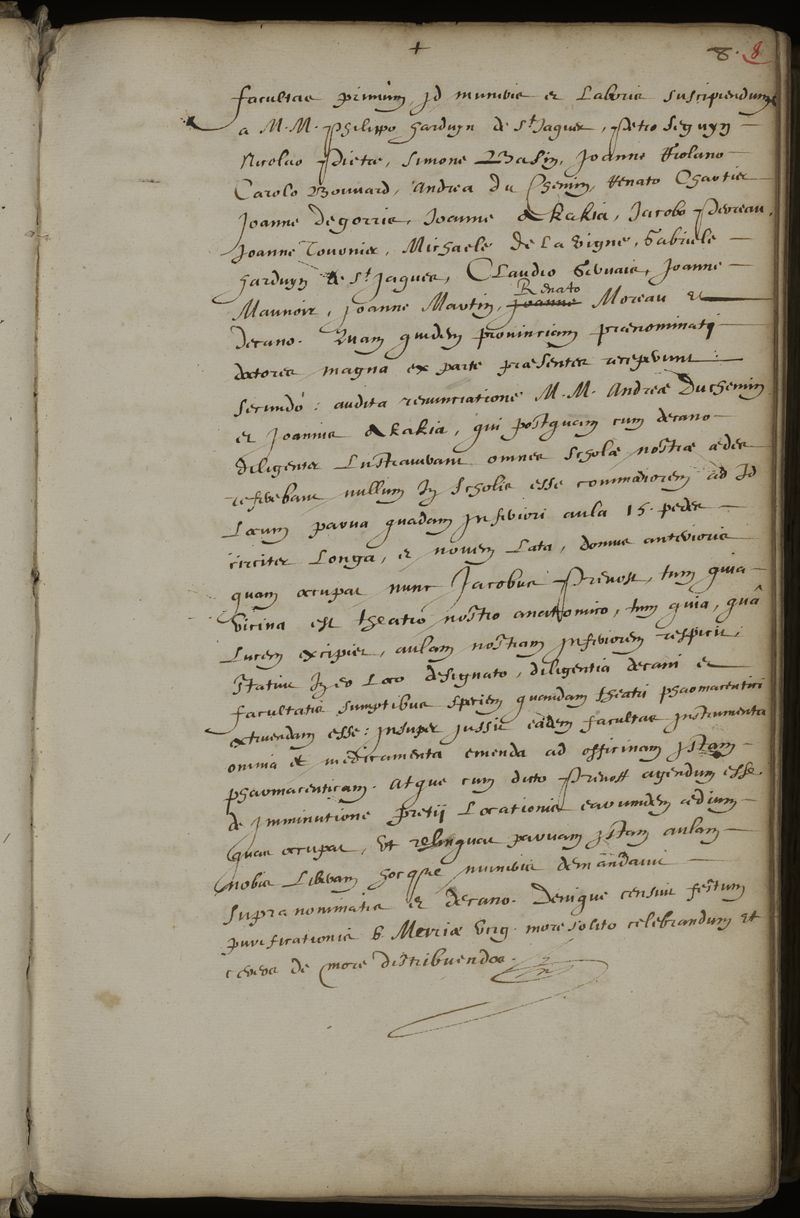 +
8. 8
facultas primùm id muneris et laboris suscipiendum
a M.M. Philippo Harduyn de St Jaques, Petro Seguyn
Nicolao Pietre, Simone Basin, Joanne Riolano
Carolo Bouuard, Andrea du Chemin, Renato Chartier
Joanne Degorris, Joanne Akakia, Jacobo Perreau,
Joanne Tournier, Michaele de la Vigne, Gabriele
Harduyn de St Jaques, Claudio Geruais, Joanne
Renato
Maunoir, Joanne Martin, Joanne Moreau et
Decano. Quam quidem prouinciam prænominati
doctores magna ex parte præsentes receperunt.
Secundò: audita renunciatione M.M. Andreæ Duchemin
et Joannis Akakia, qui postquam cum decano
diligenter lustrauerant omnes scholæ nostræ ædes
referebant nullum in scholis esse commodiorem ad id
Locum parua quadam inferiori aula 15. pedes
circiter longa, et nouem lata, domus anterioris
quam occupat nunc Jacobus Preuost, tum quia
vicina est theatro nostro anatomico, tum quia, quâ
Lucem excipiet, aulam nostram inferiorem respicit;
statuit in eo loco designato, diligentia decani et
facultatis sumptibus speciem quamdam theatri pharmaceutici
extruendam esse: insuper jussit eadem facultas instrumenta
omnia et medicamenta emenda ad officinam istam
pharmaceuticam. Atque cum dicto Preuost agendum esse
de imminutione pretij locationis earumdem ædium
quas occupat, vt relinquat paruam istam aulam
nobis liberam hocque muneris demandauit
supra nominatis et decano. Denique censuit festum
purificationis B Mariæ Virg. more solito celebrandum et
cereos de more distribuendos.